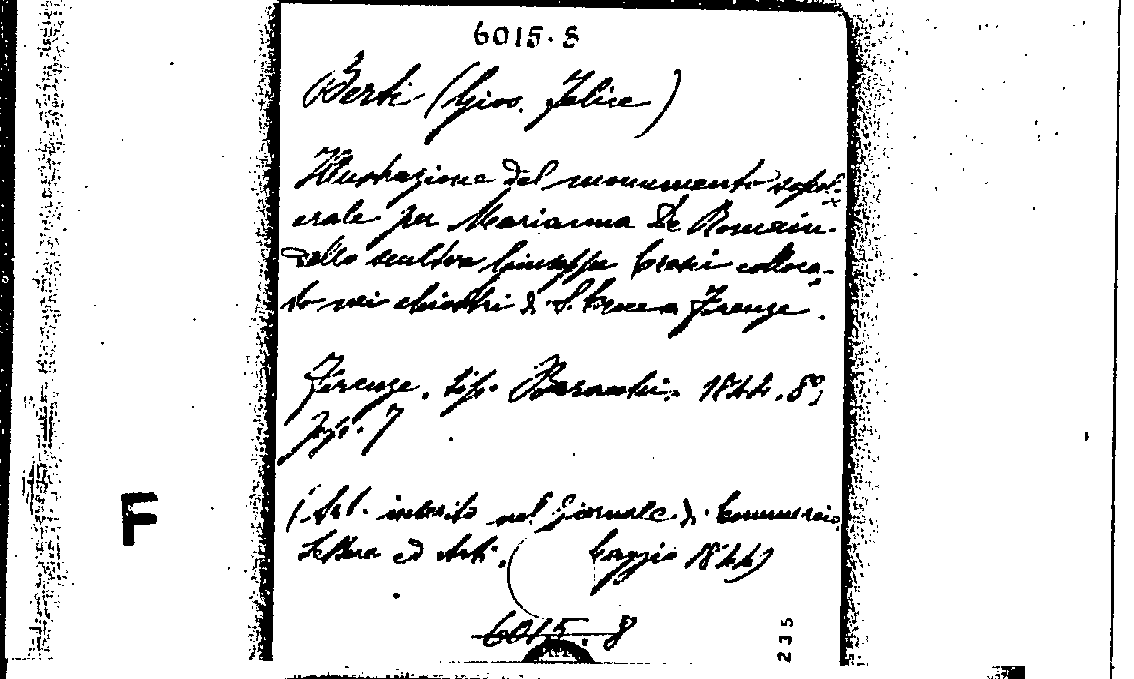 6015.8
Berti (Giov. Felice)
Illustrazione del monumento sepol-
crale per Marianna De Romain.
dello scultore Giuseppe Grazi colloca-
to nei chiostri di S. Croce a Firenze.
Firenze, tip. 1844. 8°,
pp. 7
(Art. inserito nel Giornale di Commercio
Lettere ed Arti. 1844)
6015.8
235
F